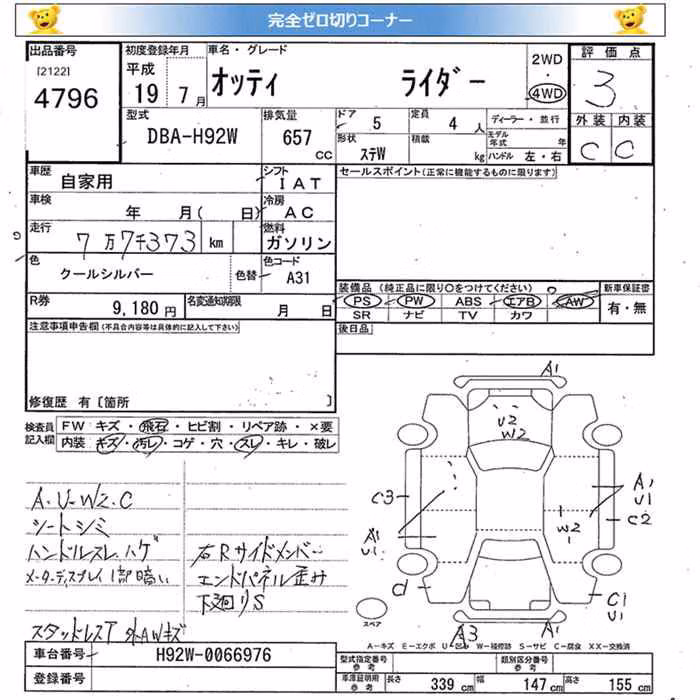 完全ゼロ切りコーナー
出品番号 初度登録年月 車名・グレード 2WD 評価点
[2122] 平成 オッティ ライダー 4WD 3
4796 19 7月
型式 排気量 ドア 5 定員 4人 ディーラー・並行 外装 内装
DBA-H92W 657 cc 形状 ステW 積載 kg モデル年式 年 C C
ハンドル 左・右
車歴 自家用 シフト IAT セールスポイント(正常に機能するものに限ります)
車検 年 月( 日) 冷房 AC
走行 7万7千373 km 燃料 ガソリン
色 クールシルバー 色替 色コード A31
装備品 (純正品に限り○をつけてください) 新車保証書
R券 9,180円 名変通知期限 月 日 PS PW ABS エアB AW 有・無
SR ナビ TV カワ
注意事項申告欄(不具合内容等は具体的に記入して下さい) 後日品
修復歴 有 [箇所 ]
検査員記入欄 FW キズ・飛石・ヒビ割・リペア跡・×要
内装 キズ・汚レ・コゲ・穴・スレ・キレ・破レ
A1
U2
W2
A.U-W2.C
シートシミ
ハンドルスレ.ハゲ 右Rサイドメンバー
メーターディスプレイ1部暗い エンドパネル歪み
下廻りS
スタッドレスT 外AWキズ
C3 A1 U1 W2 1 A1 U1 C2
d C1 U1
スペア A3 A1
A-キズ E-エクボ U-凹み W-補修跡 S-サビ C-腐食 XX-交換済
車台番号 H92W-0066976
型式指定番号 参考 類別区分番号 参考
登録番号 車庫証明用 参考 長さ 339 cm 幅 147 cm 高さ 155 cm